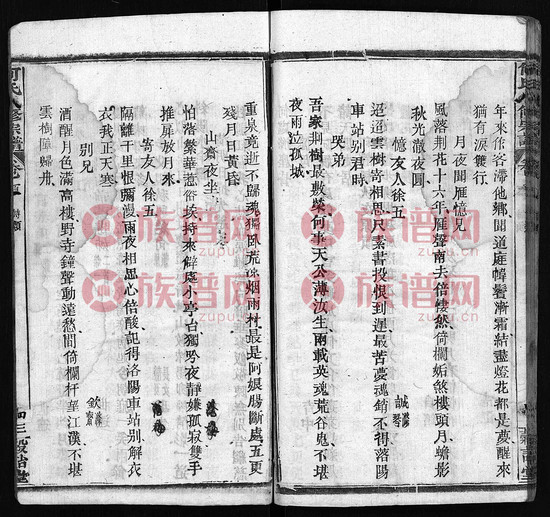 年來作客滯他鄉聞道庭幃鬢漸霜結盡燈花都是夢醒來
猶有淚雙行
月夜聞雁憶兄
風落荆花十六年雁聲南去倍悽然倚欄姤煞樓頭月蟾影
秋光澈夜圓
憶友人徐五
迢迢雲樹寄相思尺素書投恨到遲最苦夢魂銷不得落陽
車站別君時
哭弟
吾家荆樹最敷榮何事天公薄汝生兩載英魂荒谷鬼不堪
夜雨泣孤城
誠
重泉竟逝不歸魂獨臥荒 烟雨村最是阿娘腸斷處五更
殘月日黃昏
山齋夜坐
怕當繁華惹俗埃持來僻處小亭台獨吟夜靜嫌孤寂雙手
推扉放月來
寄友人徐五
隔離千里恨彌漫雨夜相思心倍酸記得洛陽車站別解衣
衣我正天寒
別兄
酒醒月色滿高樓野寺鐘聲動遠愁閒倚欄杆望江漢不堪
雲樹憶歸舟
欽
何氏八修宗譜
卷
詩類
四三
族谱网
zupu.cn
族谱网
zupu.cn